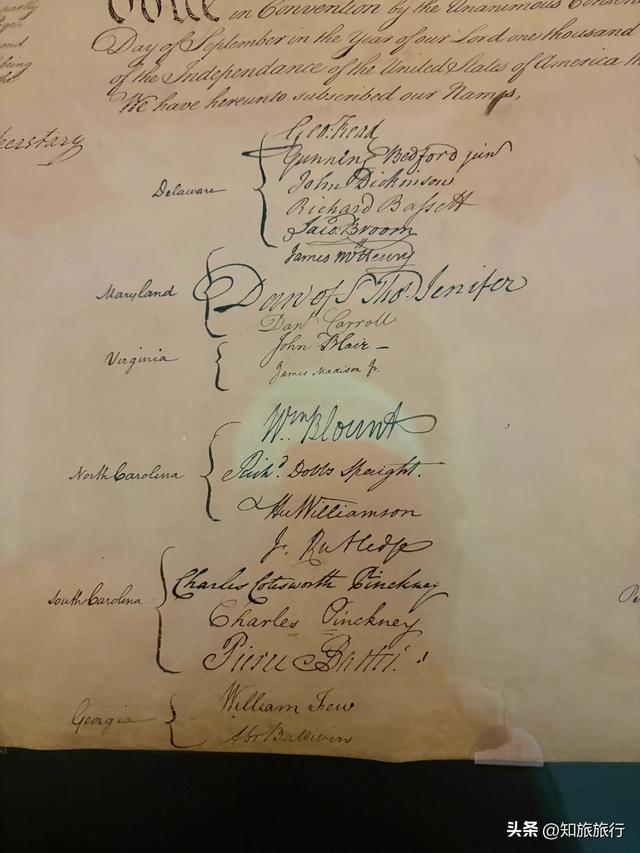 DONE in Convention by the Unanimous Consent
Day of September in the Year of our Lord one thousand
of the Independance of the United States of America the
We have hereunto subscribed our Names,
Delaware
Geo: Read
Gunning Bedford jun
John Dickinson
Richard Bassett
Jaco: Broom
Maryland
James McHenry
Dan of St Thos. Jenifer
Danl Carroll
Virginia
John Blair –
James Madison Jr.
North Carolina
Wm. Blount
Richd. Dobbs Spaight.
Hu Williamson
South Carolina
J. Rutledge
Charles Cotesworth Pinckney
Charles Pinckney
Pierce Butler.
Georgia
William Few
Abr Baldwin
头条 @知旅旅行